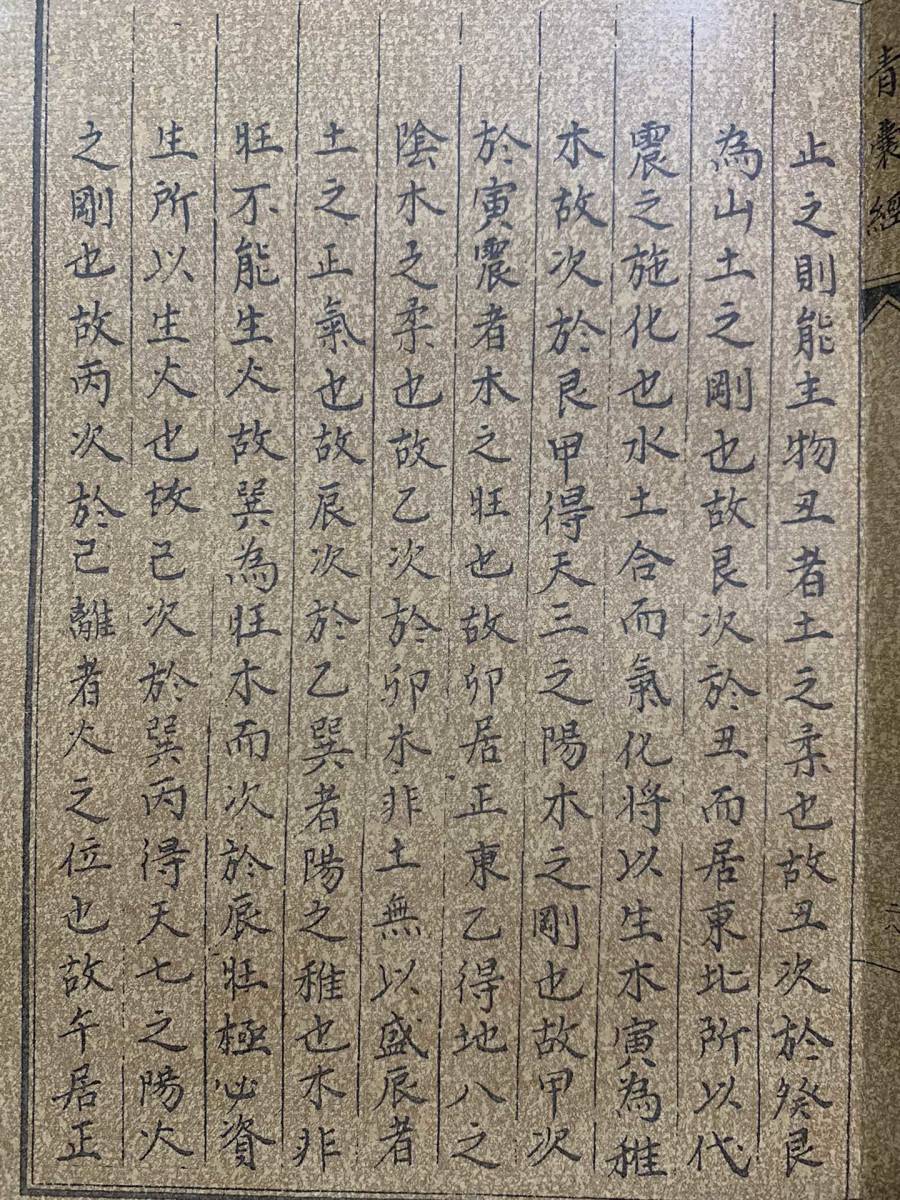 青囊經
止之則能主物丑者土之柔也故丑次於癸艮
為山土之剛也故艮次於丑而居東北所以代
震之施化也水土合而氣化将以生木寅為稚
木故次於艮甲得天三之陽木之剛也故甲次
於寅震者木之旺也故卯居正東乙得地八之
陰木之柔也故乙次於卯木非土無以盛辰者
土之正氣也故辰次於乙巽者陽之稚也木非
旺不能生火故巽為旺木而次於辰旺極必資
生所以生火也故己次於巽丙得天七之陽火
之剛也故丙次於己離者火之位也故午居正